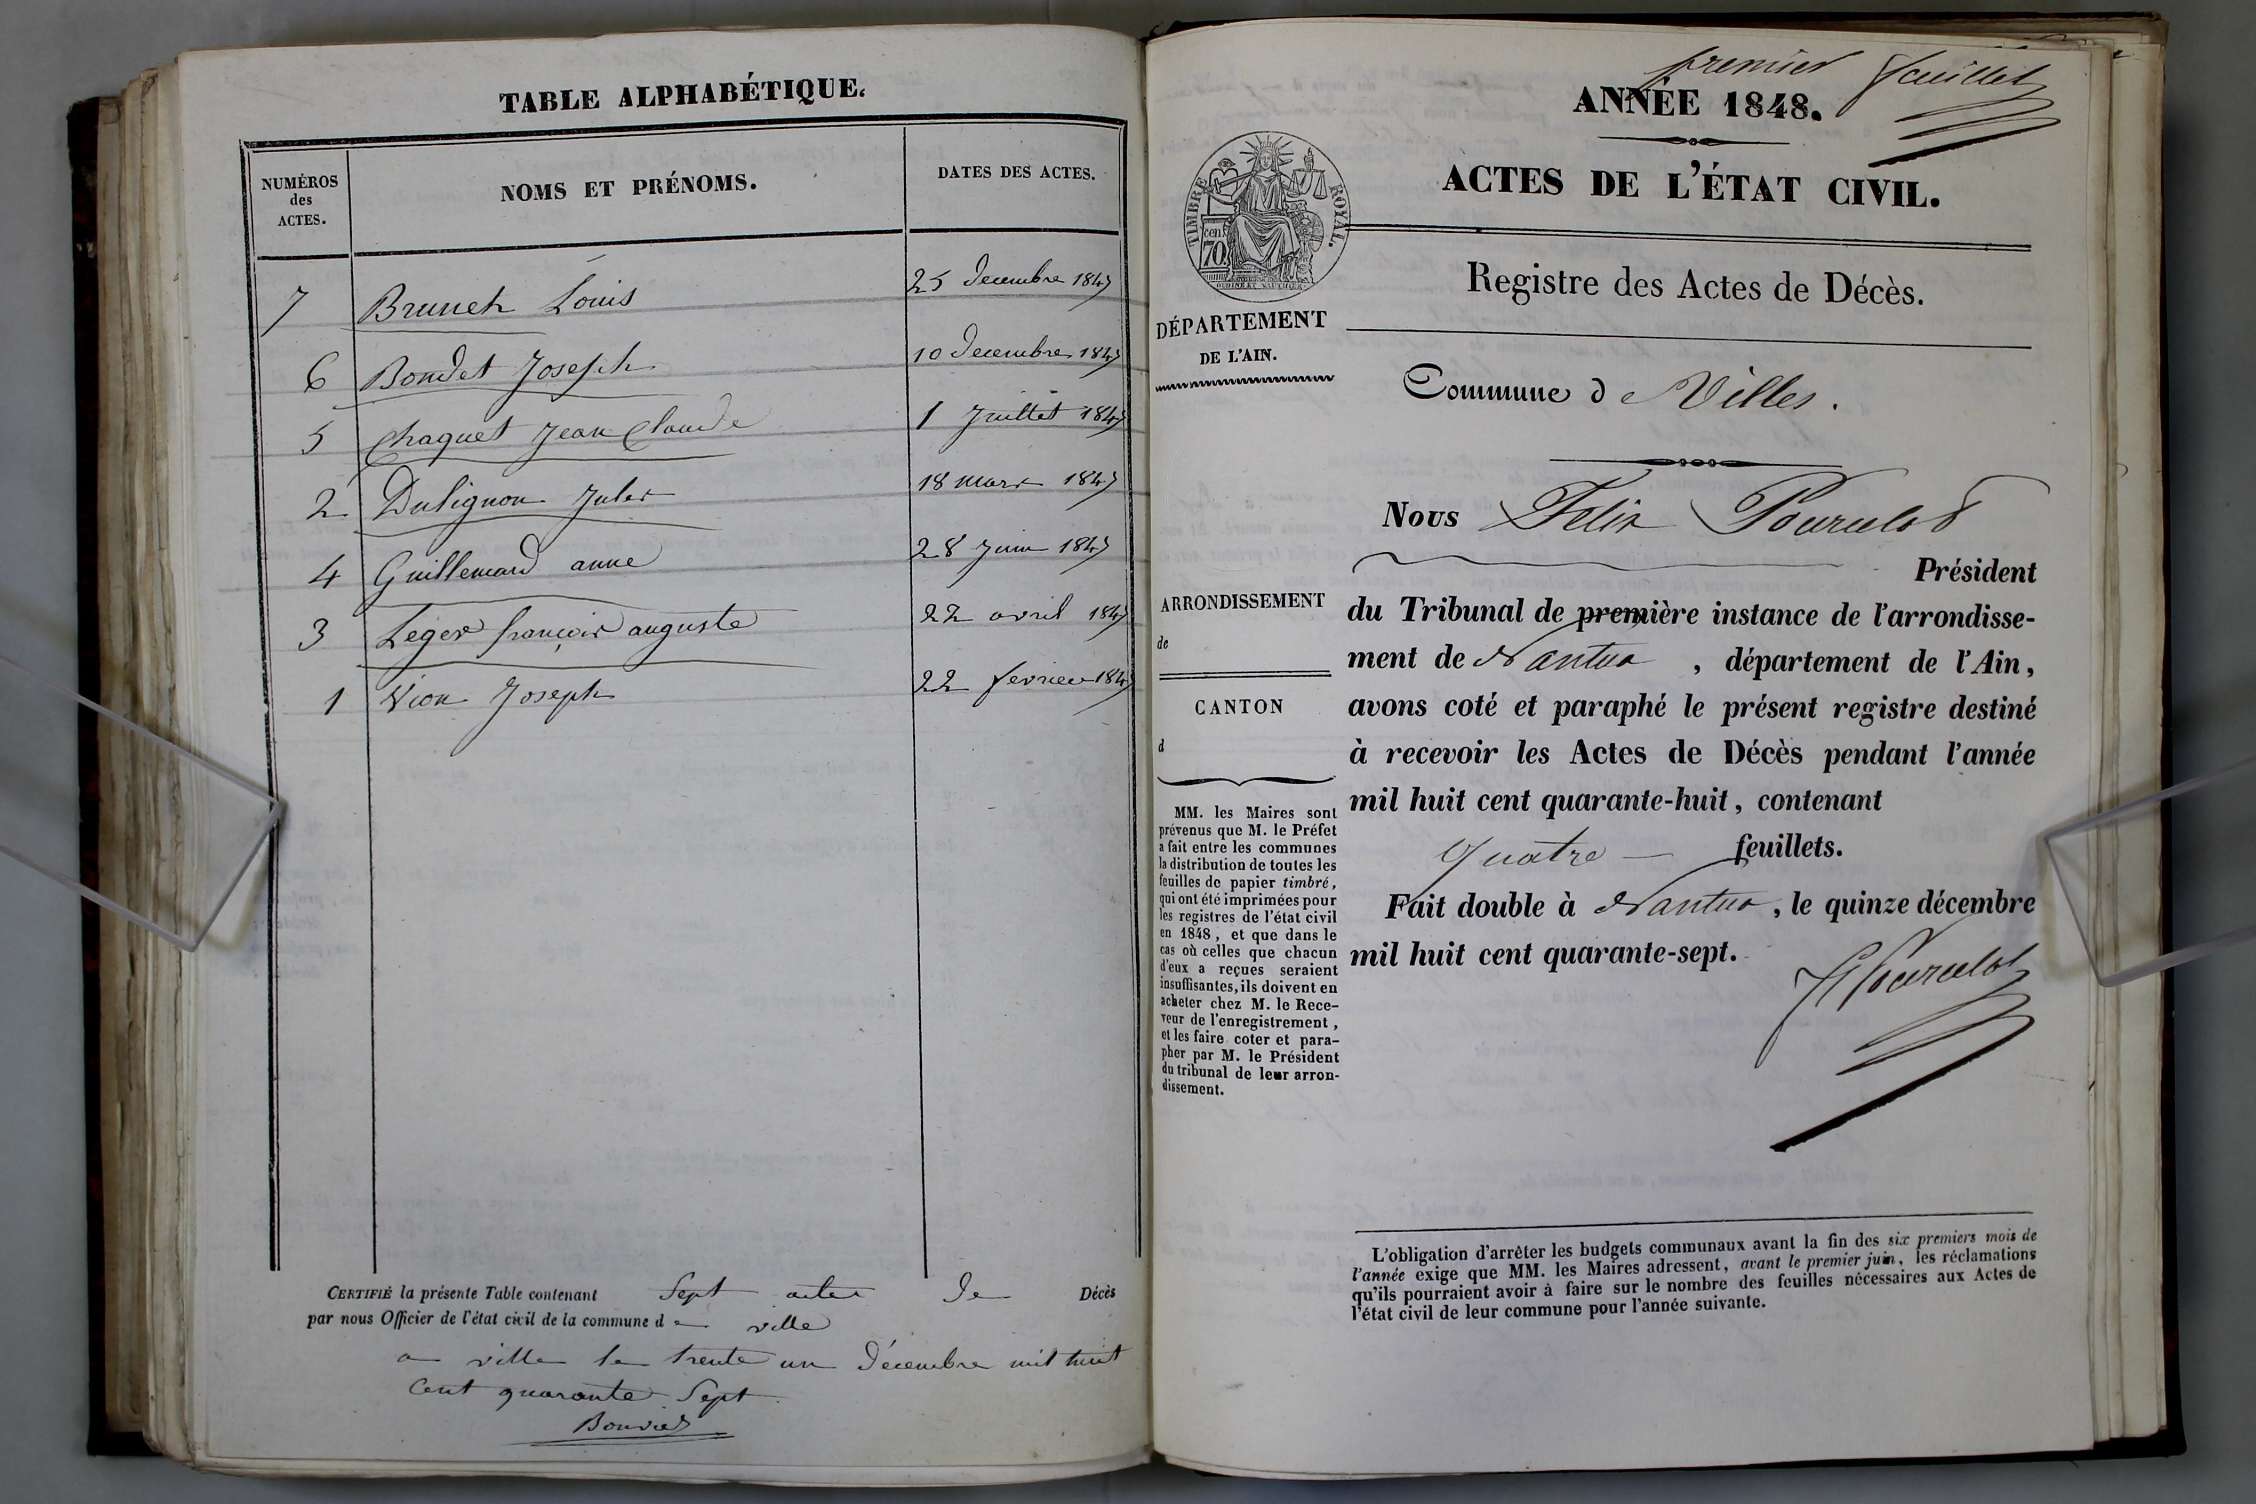 TABLE ALPHABÉTIQUE.
NUMÉROS
des
ACTES.
NOMS ET PRÉNOMS.
DATES DES ACTES.
7 Brunet Louis 25 decembre 1847
6 Boudet Joseph 10 decembre 1847
5 Chaquet Jean Claude 1 Juillet 1847
2 Dulignon Jules 18 mars 1847
4 Guillemard anne 28 Juin 1847
3 Leger françois auguste 22 avril 1847
1 Vion Joseph 22 fevrier 1847
CERTIFIÉ la présente Table contenant Sept actes de Décès
par nous Officier de l'état civil de la commune de ville
a ville le trente un Décembre mil huit
cent quarante Sept
Bouvier
premier feuillet
ANNÉE 1848.
ACTES DE L'ÉTAT CIVIL.
TIMBRE ROYAL.
cen.
70
Registre des Actes de Décès.
DÉPARTEMENT
DE L'AIN.
Commune de Villes.
Nous Felix Pourcelot
Président
du Tribunal de première instance de l'arrondisse-
ment de Nantua, département de l'Ain,
avons coté et paraphé le présent registre destiné
à recevoir les Actes de Décès pendant l'année
mil huit cent quarante-huit, contenant
quatre feuillets.
Fait double à Nantua, le quinze décembre
mil huit cent quarante-sept.
Pourcelot
ARRONDISSEMENT
de
CANTON
d
MM. les Maires sont
prévenus que M. le Préfet
a fait entre les communes
la distribution de toutes les
feuilles de papier timbré,
qui ont été imprimées pour
les registres de l'état civil
en 1848, et que dans le
cas où celles que chacun
d'eux a reçues seraient
insuffisantes, ils doivent en
acheter chez M. le Rece-
veur de l'enregistrement,
et les faire coter et para-
pher par M. le Président
du tribunal de leur arron-
dissement.
L'obligation d'arrêter les budgets communaux avant la fin des six premiers mois de
l'année exige que MM. les Maires adressent, avant le premier juin, les réclamations
qu'ils pourraient avoir à faire sur le nombre des feuilles nécessaires aux Actes de
l'état civil de leur commune pour l'année suivante.